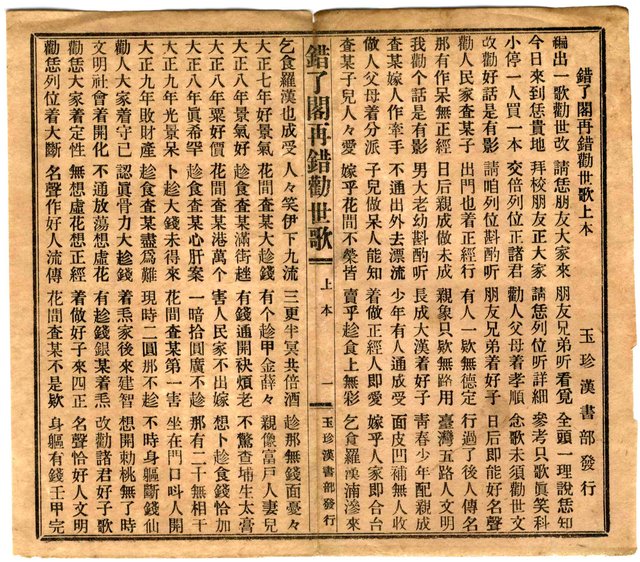 錯了閣再錯勸世歌上本 玉珍漢書部發行
編出一歌勸世改 請恁朋友大家來 朋友兄弟听看覓 全頭一理說恁知
今日來到恁貴地 拜校朋友正大家 請恁列位听詳細 參考只歌眞笑科
小停一人買一本 交倍列位正諸君 勸人父母着孝順 念歌未須勸世文
改勸好話是有影 請咱列位斟酌听 朋友兄弟着好子 日后即能好名聲
勸人民家查某子 出門也着正經行 有人一欵無德定 行過了後人傳名
那有作呆無正經 日后親成做未成 親象只欵無路用 臺灣五路人文明
我勸个話是有影 男大老幼斟酌听 長成大漢着好子 靑春少年配親成
查某嫁人作牽手 不通出外去漂流 少年有人通成受 面皮凹補無人收
做人父母着分派 子兒做呆人能知 着做正經人即愛 嫁乎人家即合台
查某子兒人々愛 嫁乎花間不榮皆 賣乎趁食上無彩 乞食羅漢湳滲來
錯了閣再錯勸世歌 上本 一 玉珍漢書部發行
乞食羅漢也成受 人々笑伊下九流 三更半冥共倍酒 趁那無錢面憂々
大正七年好景氣 花間查某大趁錢 有个趁甲金薛々 親像富戶人妻兒
大正八年景氣好 趁食查某滿街趖 有錢通開袂煩老 不驚查埔生太膏
大正八年粟好價 花間查某港萬个 害人民家不出嫁 想卜趁食錢恰加
大正八年眞希罕 趁食查某心肝案 一暗拾圓廣不趁 那有二十無相干
大正九年光景呆 卜趁大錢未得來 花間查某第一害 坐在門口呌人開
大正九年敗財產 趁食查某盡爲難 現時二圓那不趁 不時身軀斷錢仙
勸人大家着守己 認眞骨力大趁錢 着𤆬家後來建智 想開勅桃無了時
文明社會着開化 不通放蕩想虛花 有趁錢銀某着𤆬 改勸諸君好子歌
勸恁大家着定性 無想虛花想正經 着做好子來四正 名聲恰好人文明
勸恁列位着大斷 名聲作好人流傳 花間查某不是欵 身軀有錢壬甲完